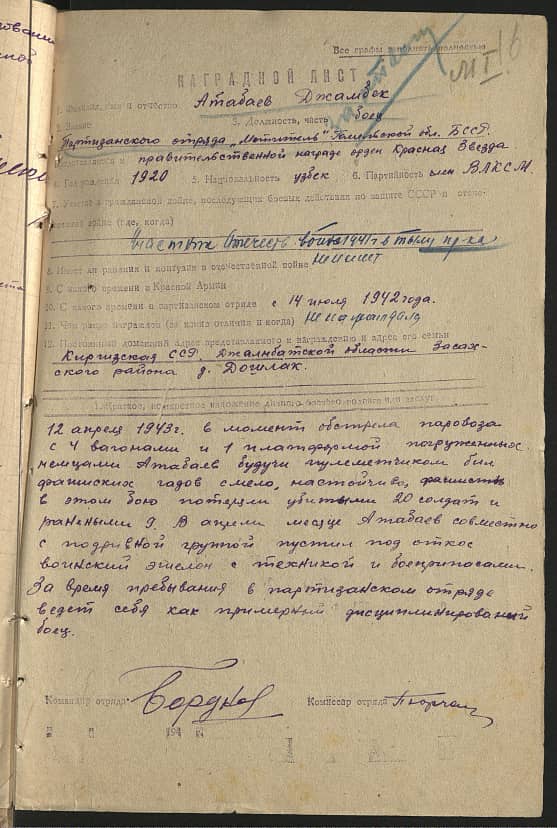 Все графы заполнять полностью
НАГРАДНОЙ ЛИСТ
1. Фамилия, имя и отчество Атабаев Джамбек
2. Звание 3. Должность, часть боец
Партизанского отряда „Мститель" Гомельской обл. БССР.
Представляется к правительственной награде орден Красная Звезда
4. Год рождения 1920 5. Национальность узбек 6. Партийность член ВЛКСМ.
7. Участие в гражданской войне, последующих боевых действиях по защите СССР и отече-
ственной войне (где, когда)
Участник Отечеств войны 1941 г в тылу пр-ка
8. Имеет ли ранения и контузии в отечественной войне не имеет
9. С какого времени в Красной Армии
10. С какого времени в партизанском отряде с 14 июля 1942 года.
11. Чем ранее награжден (за какие отличия и когда)
12. Постоянный домашний адрес представляемого к награждению и адрес его семьи
Киргизская ССР.
ского района д.
1. Краткое, конкретное изложение личного боевого подвига или заслуг
12 апреля 1943г. в момент обстрела паровоза
с 4 вагонами и 1 платформой погруженных
немцами Атабаев будучи пулеметчиком бил
фашиских гадов смело, настойчиво, фашисты
в этом бою потеряли убитыми 20 солдат и
ранеными 9. В апреле месяце Атабаев совместно
с подривной группой пустил под откос
воинский эшелон с техникой и боеприпасами.
За время пребывания в партизанском отряде
ведет себя как примерный дисциплинированый
боец.
Командир отряда Комиссар отряда
194